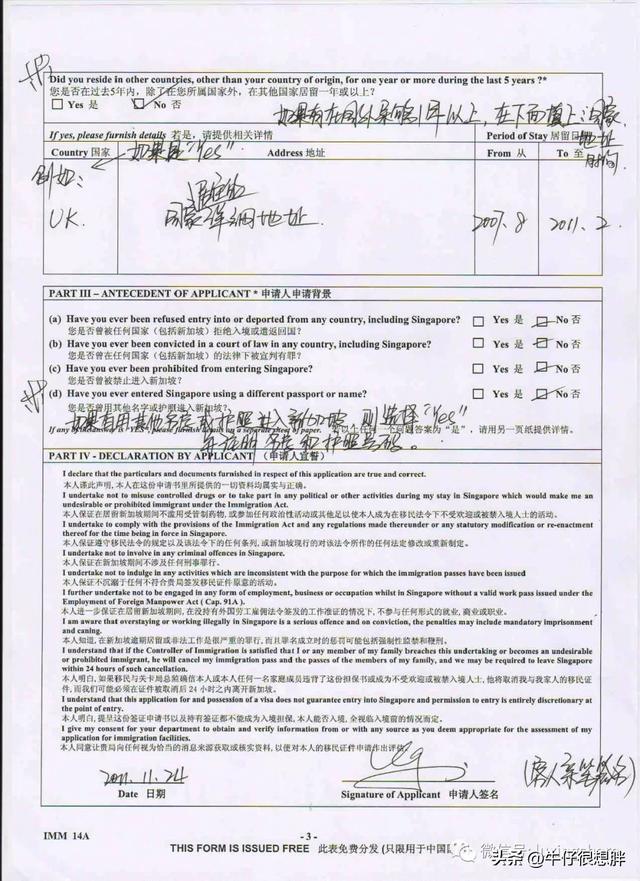 Did you reside in other countries, other than your country of origin, for one year or more during the last 5 years ?*
您是否在过去5年内，除了在您所属国家外，在其他国家居留一年或以上？
Yes 是 No 否
如果有在国外累积1年以上，在下面填上：国家
地址
时间
If yes, please furnish details 若是，请提供相关详情
Period of Stay 居留日
Country 国家
如果是"Yes".
Address 地址
From 从
To 至
例如：
UK.
居住的
国家详细地址
2007. 8
2011. 2
PART III – ANTECEDENT OF APPLICANT * 申请人申请背景
(a) Have you ever been refused entry into or deported from any country, including Singapore? Yes 是 No 否
您是否曾被任何国家（包括新加坡）拒绝入境或遭返回国？
(b) Have you ever been convicted in a court of law in any country, including Singapore? Yes 是 No 否
您是否曾在任何国家（包括新加坡）的法律下被宣判有罪？
(c) Have you ever been prohibited from entering Singapore? Yes 是 No 否
您是否曾被禁止进入新加坡？
(d) Have you ever entered Singapore using a different passport or name? Yes 是 No 否
您是否曾用其他名字或护照进入新加坡？
如果有用其他名字或护照进入新加坡，则选择"Yes"
If any of the answer is "YES", please furnish details on a separate sheet of paper. 若以上任何一个问题答案为“是”，请用另一页纸提供详情。
名字和护照号码。
PART IV - DECLARATION BY APPLICANT （申请人宣誓）
I declare that the particulars and documents furnished in respect of this application are true and correct.
本人谨此声明，本人在这份申请书里所提供的一切资料均属实与正确。
I undertake not to misuse controlled drugs or to take part in any political or other activities during my stay in Singapore which would make me an
undesirable or prohibited immigrant under the Immigration Act.
本人保证在居留新加坡期间不滥用受管制药物，或参加任何政治性活动或其他足以使本人成为在移民法令下不受欢迎或被禁入境人士的活动。
I undertake to comply with the provisions of the Immigration Act and any regulations made thereunder or any statutory modification or re-enactment
thereof for the time being in force in Singapore.
本人保证遵守移民法令的规定以及该法令下的任何条例，或新加坡现行的对该法所作的任何法定修改或重新制定。
I undertake not to involve in any criminal offences in Singapore.
本人保证在新加坡期间不涉及任何刑事罪行。
I undertake not to indulge in any activities which are inconsistent with the purpose for which the immigration passes have been issued
本人保证不沉溺于任何不符合贵局签发移民证件原意的活动。
I further undertake not to be engaged in any form of employment, business or occupation whilst in Singapore without a valid work pass issued under the
Employment of Foreign Manpower Act ( Cap. 91A ).
本人进一步保证在居留新加坡期间，在没持有外国劳工雇佣法令签发的工作准证的情况下，不参与任何形式的就业，商业或职业。
I am aware that overstaying or working illegally in Singapore is a serious offence and on conviction, the penalties may include mandatory imprisonment
and caning.
本人知道，在新加坡逾期居留或非法工作是很严重的罪行，而且罪名成立时的惩罚可能包括强制性监禁和鞭刑。
I understand that if the Controller of Immigration is satisfied that I or any member of my family breaches this undertaking or becomes an undesirable
or prohibited immigrant, he will cancel my immigration pass and the passes of the members of my family, and we may be required to leave Singapore
within 24 hours of such cancellation.
本人明白，如果移民与关卡局总监确信本人或本人任何一名家庭成员违背了这份担保书或成为不受欢迎或被禁入境人士，他将取消我与我家人的移民证
件，而我们可能必须在证件被取消后 24 小时之内离开新加坡。
I understand that this application for and possession of a visa does not guarantee entry into Singapore and permission to entry is entirely discretionary at
the point of entry.
本人明白，提呈这份签证申请书以及持有签证都不能成为入境担保，本人能否入境，全视临入境前的情况而定。
I give my consent for your department to obtain and verify information from or with any source as you deem appropriate for the assessment of my
application for immigration facilities.
本人同意让贵局向任何视为恰当的消息来源获取或核实资料，以便对本人的移民证件申请作出评估
2011. 11. 24
(客人亲笔签名)
Date 日期
Signature of Applicant 申请人签名
IMM 14A
- 3 -
THIS FORM IS ISSUED FREE 此表免费分发 (只限用于中国
微信号
头条 @牛仔很想胖